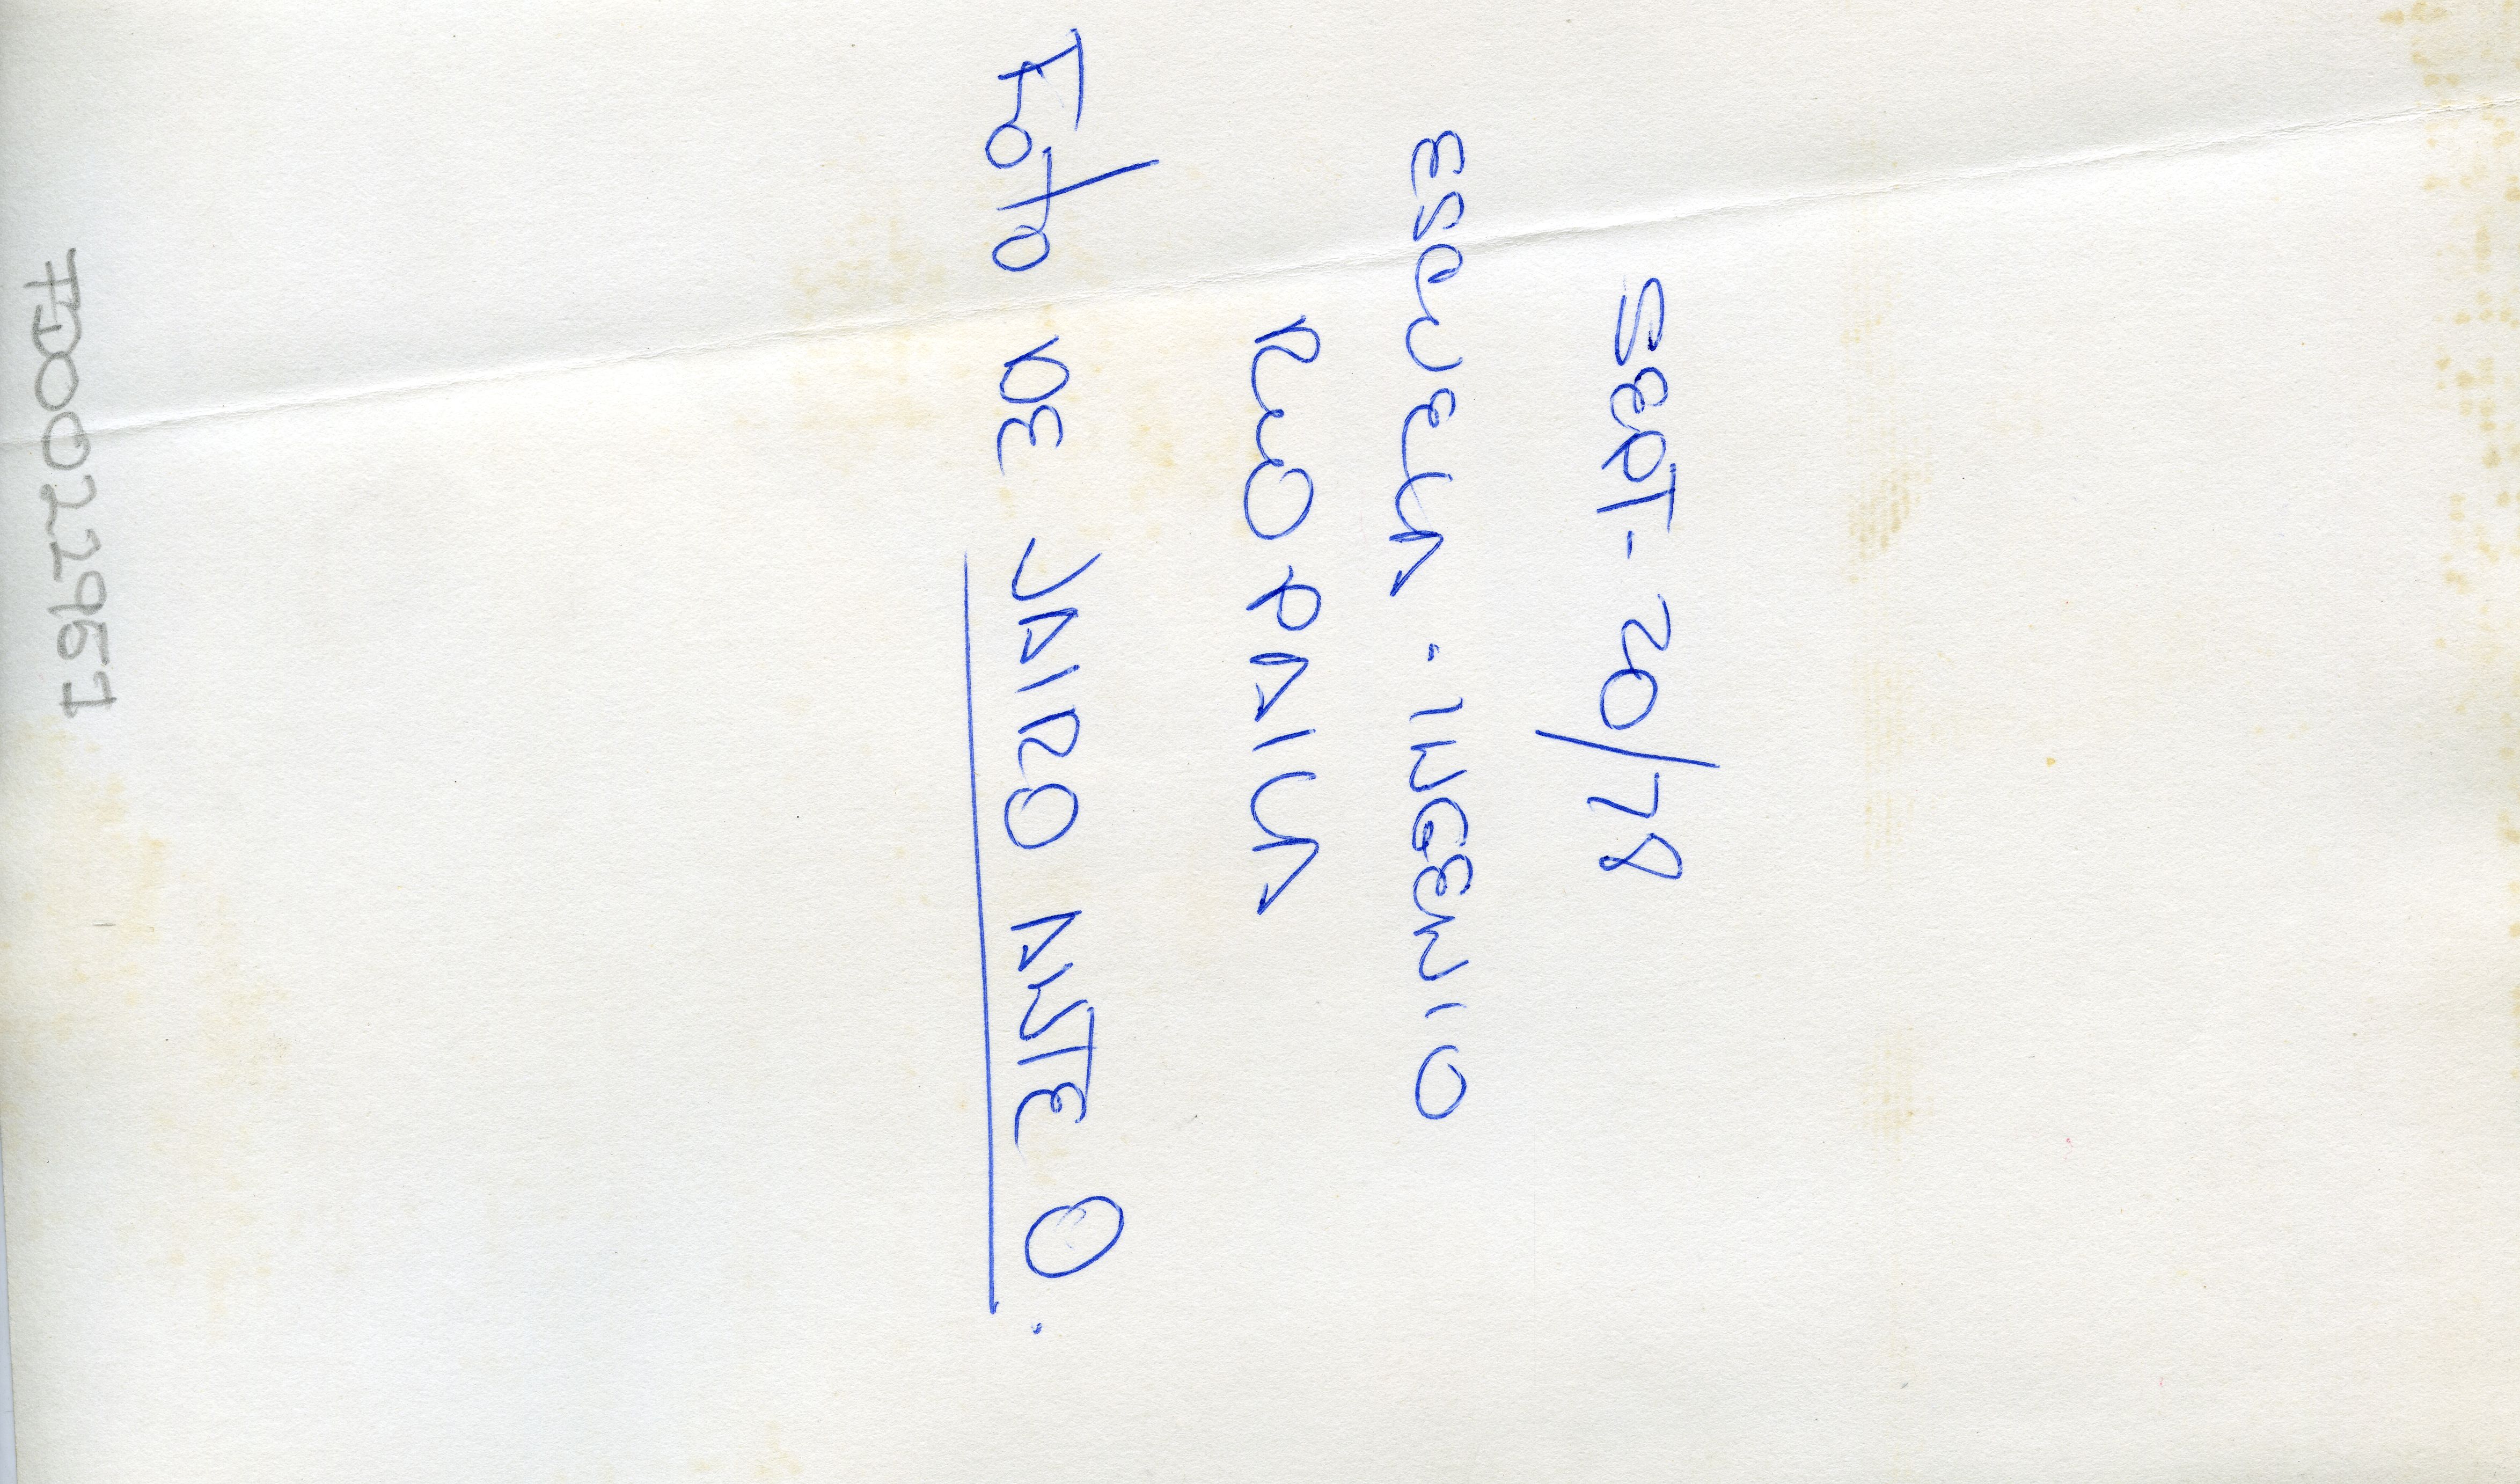 SEPT-20/78
ESCUELA . INGENIO
RIOPAILA
Foto DE JAIRO O.
FD0022951